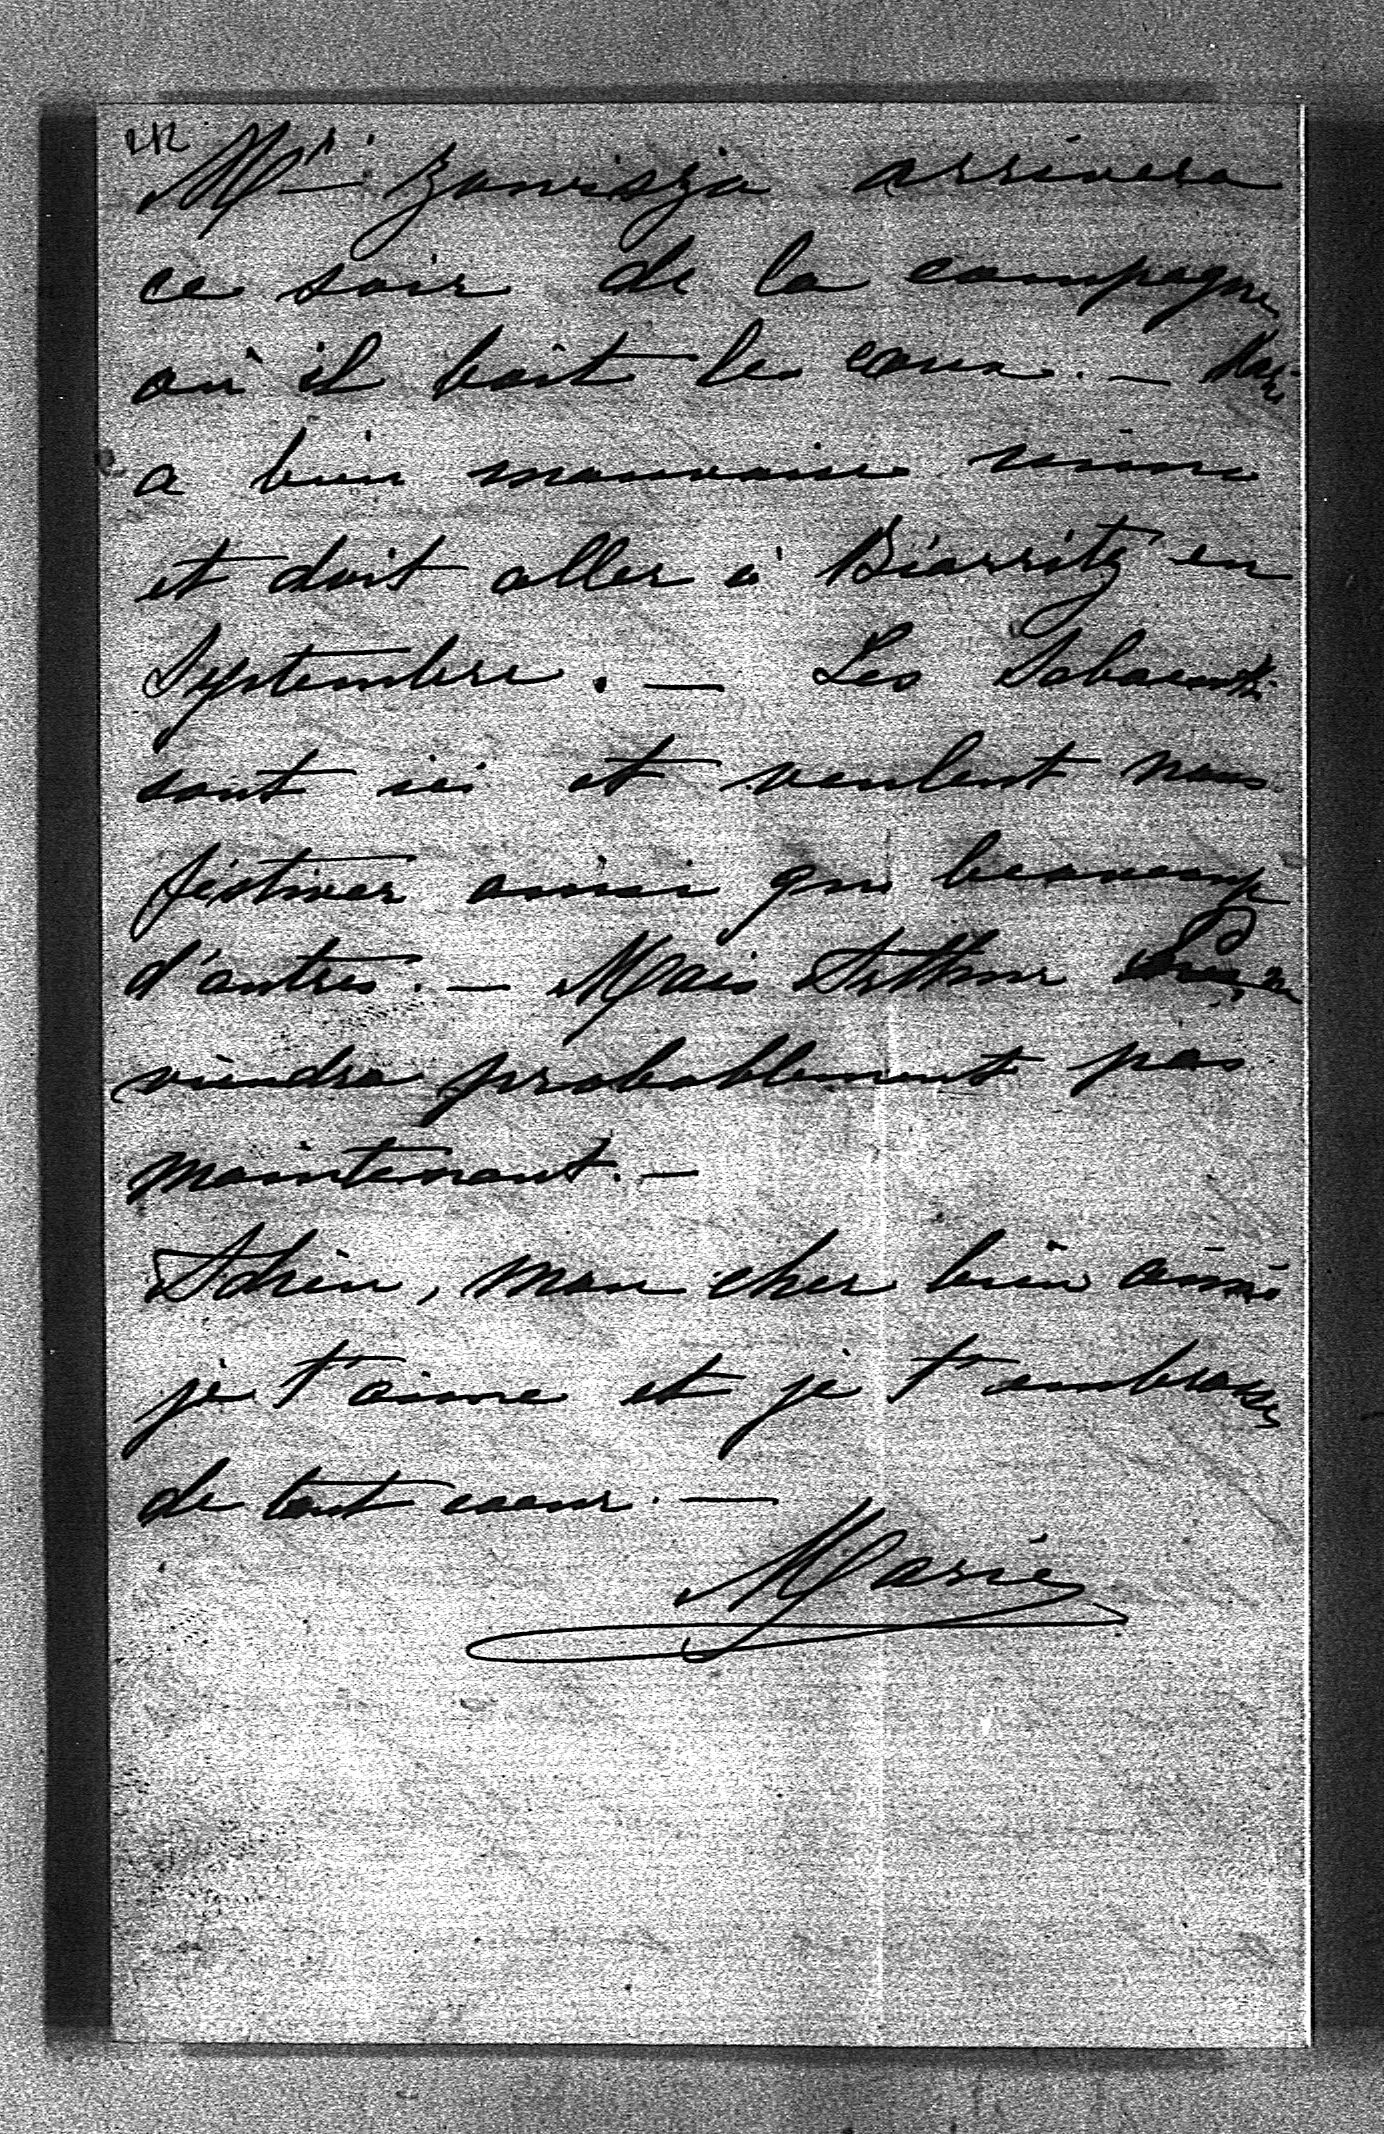 212
Mr. Zawisza arrivera
ce soir de la campagne
où il boit les eaux. —
a bien mauvaise mine
et doit aller à Biarritz en
Septembre. — Les
sont ici et veulent nous
festiver ainsi que beaucoup
d'autres. — Mais Arthur ne
viendra probablement pas
maintenant. —
Adieu, mon cher bien aimé
je t'aime et je t'embrasse
de tout coeur. —
Marie